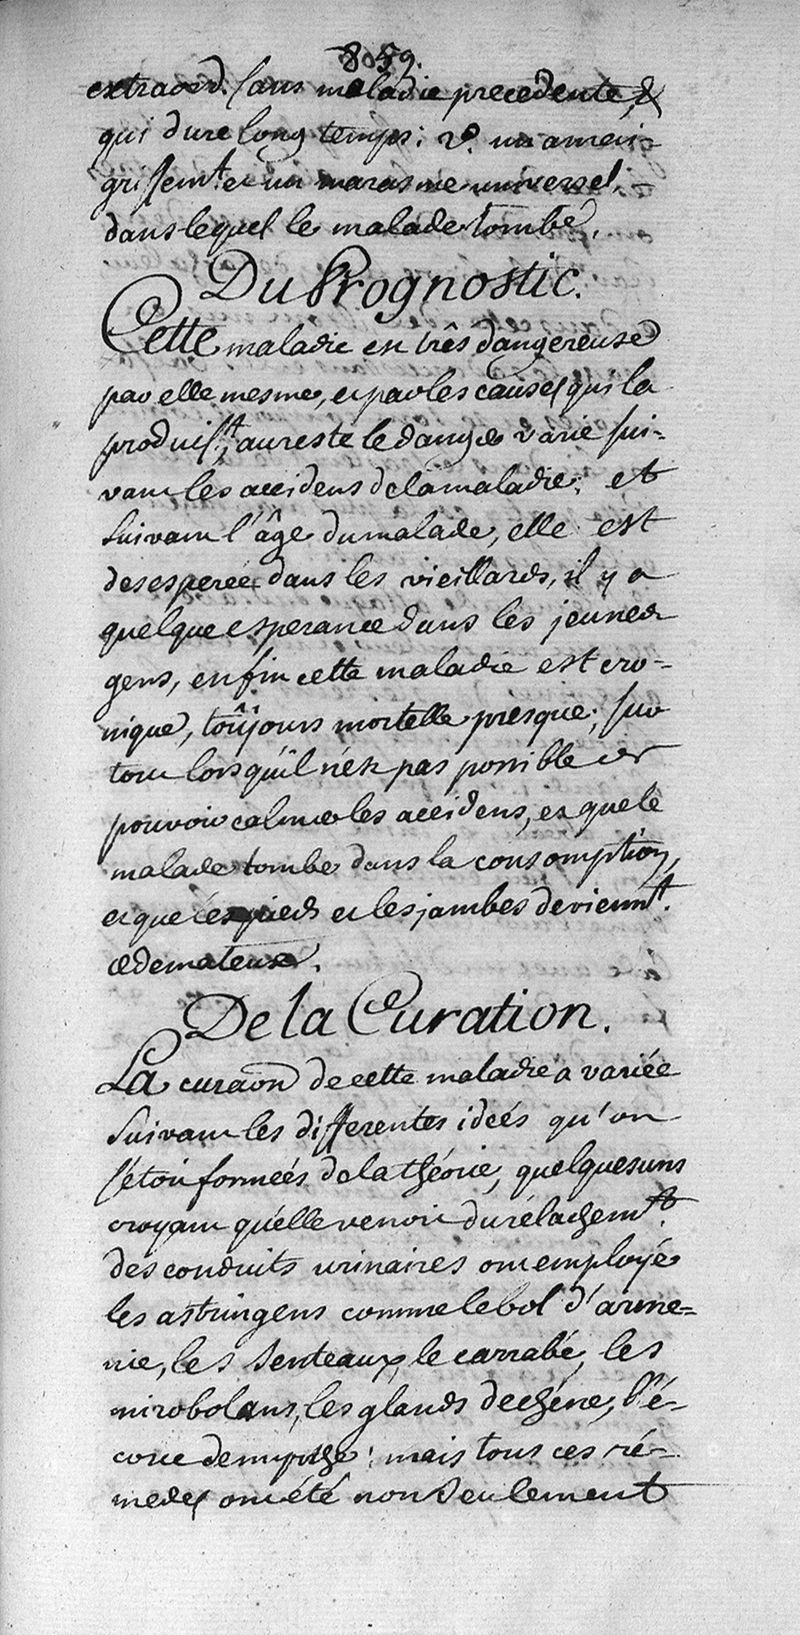 859.
extraord. sans maladie precedente, &
qui dure long temps; 2º. un amai-
grissemt. et un marasme universel,
dans lequel le malade tombe.
Du Prognostic.
Cette maladie est três dangereuse
par elle mesme, et par les causes qui la
produisrt; au reste le danger varie sui-
vant les accidens de la maladie; et
suivant l'âge du malade, elle est
desesperée dans les vieillards, il y a
quelque esperance dans les jeunes
gens, enfin cette maladie est cro-
nique, toûjours mortelle presque; sur
tout lorsqu'il n'est pas possible de
pouvoir calmer les accidens, et que le
malade tombe dans la consomption,
et que les pieds et les jambes deviennt.
œdemateuses.
De la Curation.
La curaôn de cette maladie a variée
suivant les differentes ideés qu'on
s'étoit formeés de la théorie, quelques uns
croyant qu'elle venoit du rélachemt.
des conduits urinaires ont employé
les astringens comme le bol d'arme-
nie, les senteaux, le carrabé, les
mirobolans, les glands de chéne, l'é-
corce de : mais tous ces ré-
medes ont été non seulement